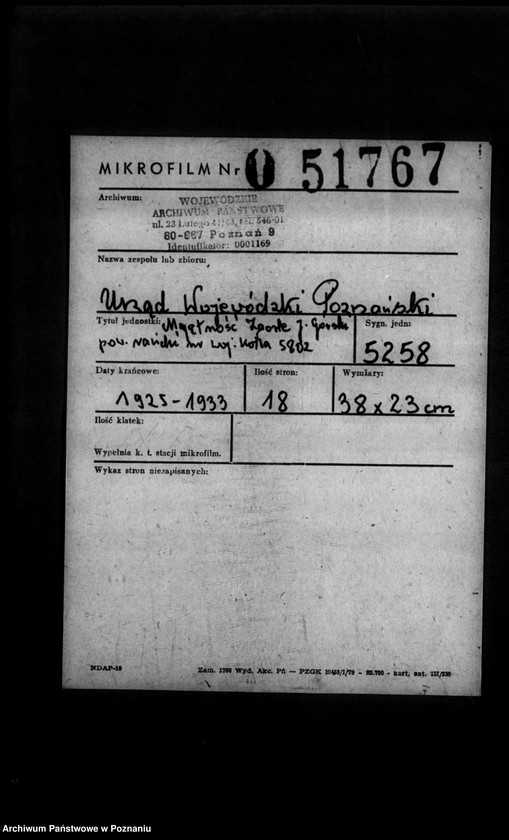 MIKROFILM Nr 0 51767
Archiwum:
WOJEWÓDZKIE
ARCHIWUM PAŃSTWOWE
ul. 23 Lutego 41/43, tel. 546-01
60-967 Poznań 9
Identyfikator: 0001169
Nazwa zespołu lub zbioru:
Urząd Wojewódzki Poznański
Tytuł jednostki: Majętność J. Górski
pow. nr woj. 5802
Sygn. jedn:
5258
Daty krańcowe:
1925-1933
Ilość stron:
18
Wymiary:
38 x 23 cm
Ilość klatek:
Wypełnia k. t. stacji mikrofilm.
Wykaz stron niezapisanych:
NDAP-19
Zam. 1760 Wyd. Akc. Pń — PZGK
Archiwum Państwowe w Poznaniu